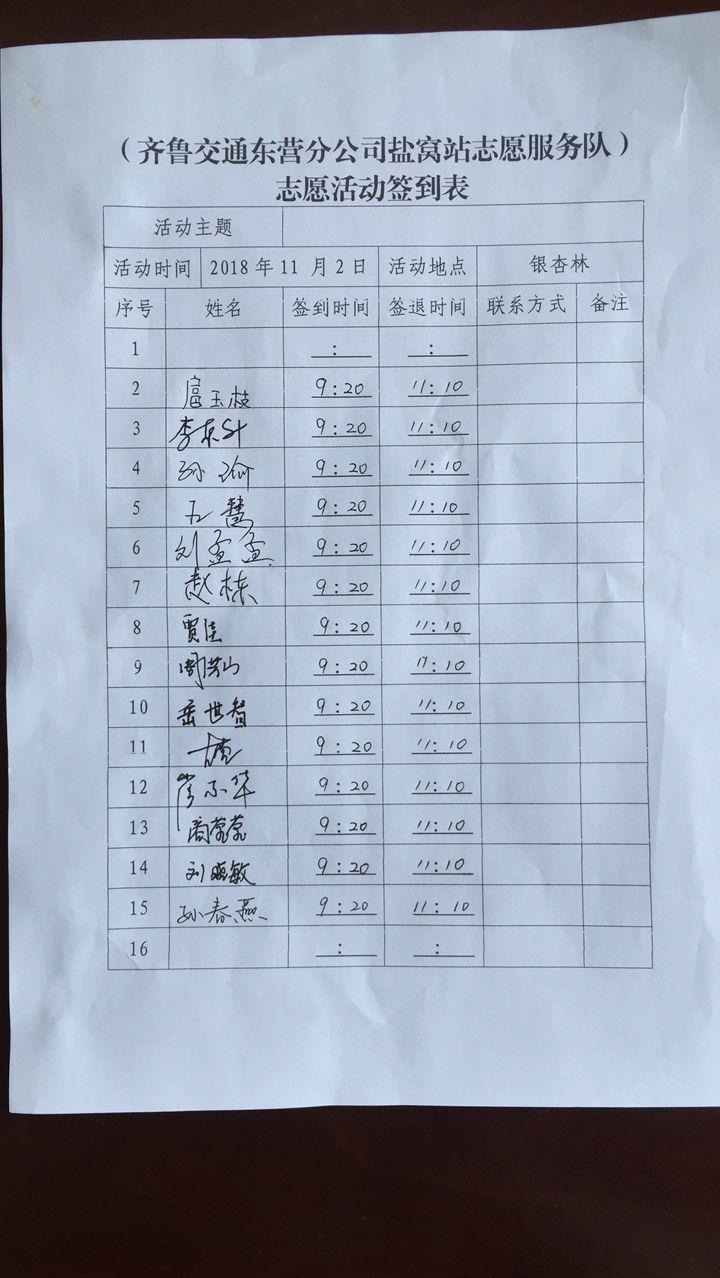 （齐鲁交通东营分公司盐窝站志愿服务队）
志愿活动签到表
活动主题
活动时间 2018 年 11 月 2 日 活动地点 银杏林
序号 姓名 签到时间 签退时间 联系方式 备注
1 : :
2 扈玉枝 9:20 11:10
3 李东升 9:20 11:10
4 孙瑜 9:20 11:10
5 王慧 9:20 11:10
6 刘孟孟 9:20 11:10
7 赵栋 9:20 11:10
8 贾佳 9:20 11:10
9 9:20 11:10
10 岳世智 9:20 11:10
11 9:20 11:10
12 9:20 11:10
13 商蒙蒙 9:20 11:10
14 9:20 11:10
15 孙春燕 9:20 11:10
16 : :